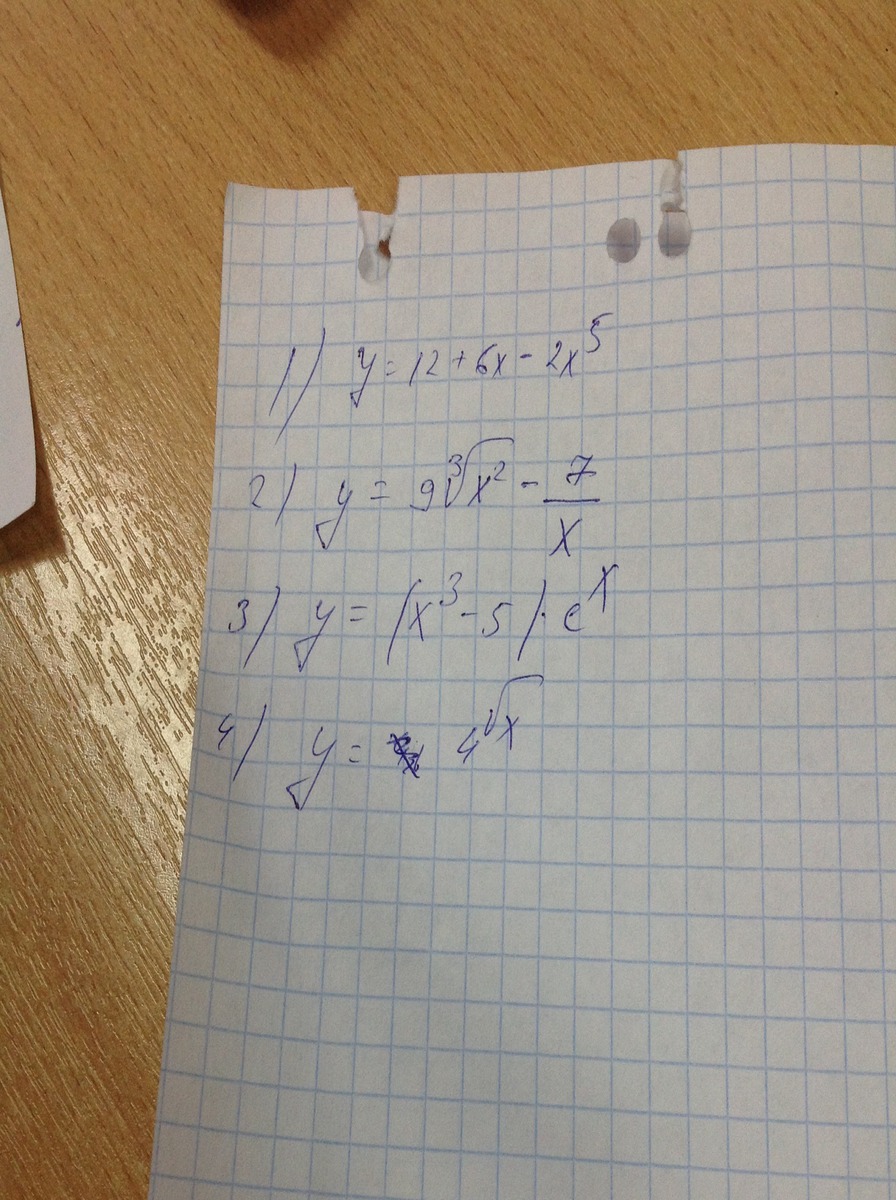 1) y = 12 + 6x - 2x⁵
2) y = 9∛x² - 7/x
3) y = (x³ - 5) · eˣ
4) y = 4^√x